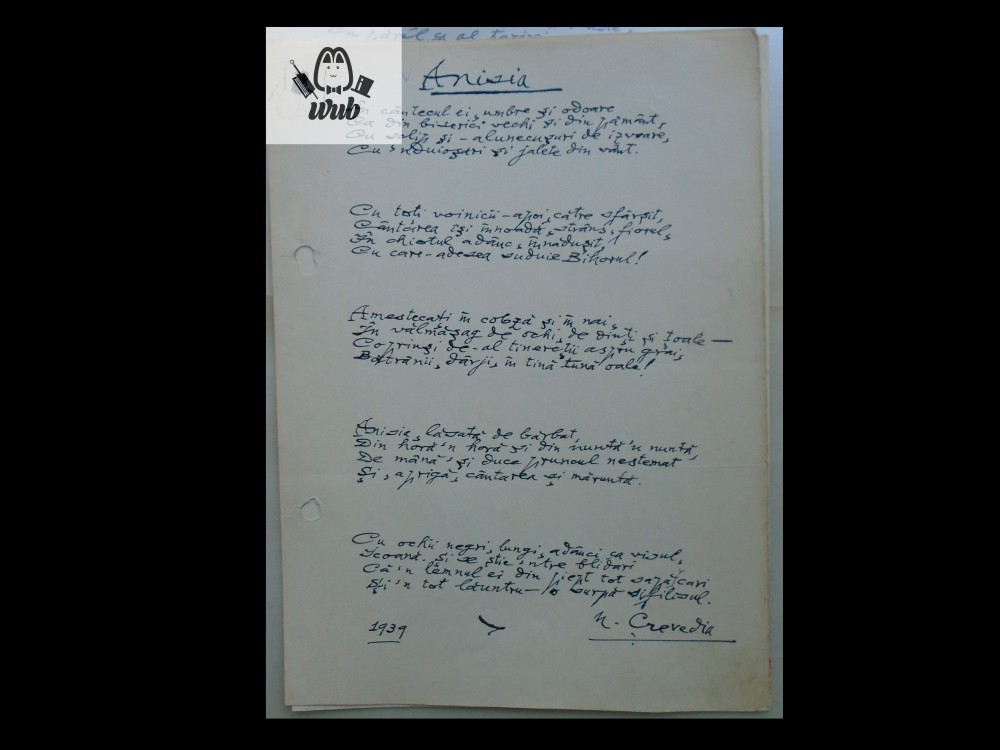 Anisia
wub
cântecul ei, umbre și odoare
din biserici vechi și din pământ,
și-alunecușuri de izvoare,
Cu 'nduioșări și jalete din vânt.
Cu toți voinicii-apoi, către sfârșit,
Cântărea își înnoadă, strâns, fiorul,
În chiotul adânc, înnădușit,
Cu care-adesea suduie Bihorul!
Amestecați în cobză și în nai,
În vălmășag de ochi, de dinți și țoale —
Coprinși de-al tinereții aspru grai,
Bătrânii, dârji, în tină tună oale!
Anisia, lăsată de bărbat,
Din horă 'n horă și din nuntă 'n nuntă,
De mână-și duce pruncul nestemat
Și, aprigă, cântarea și măruntă.
Cu ochii negri, lungi, adânci ca visul,
Icoană. Și se știe 'ntre blidari
Că 'n lemnul ei din piept tot sapă cari
Și 'n tot lăuntru-i o surpă sifilisul.
1939
N. Crevedia